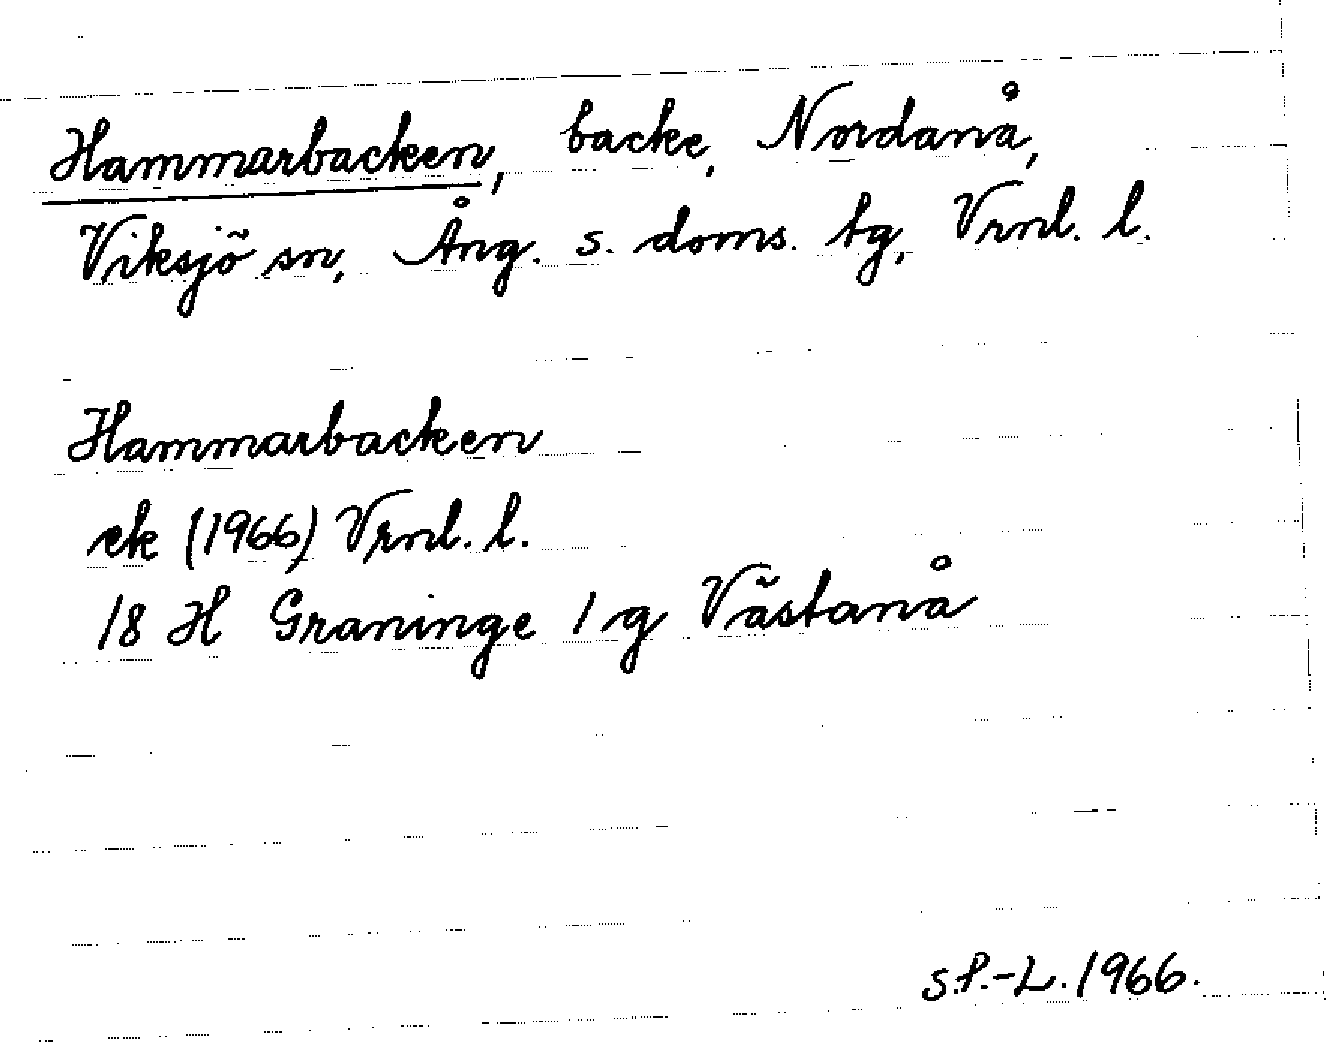 Hammarbacken, backe, Nordanå,
Viksjö sn, Ång. s. doms. tg, Vrnl. l.
Hammarbacken
ek (1966) Vrnl. l.
18 H Graninge 1 g Västanå
S.P.-L. 1966.